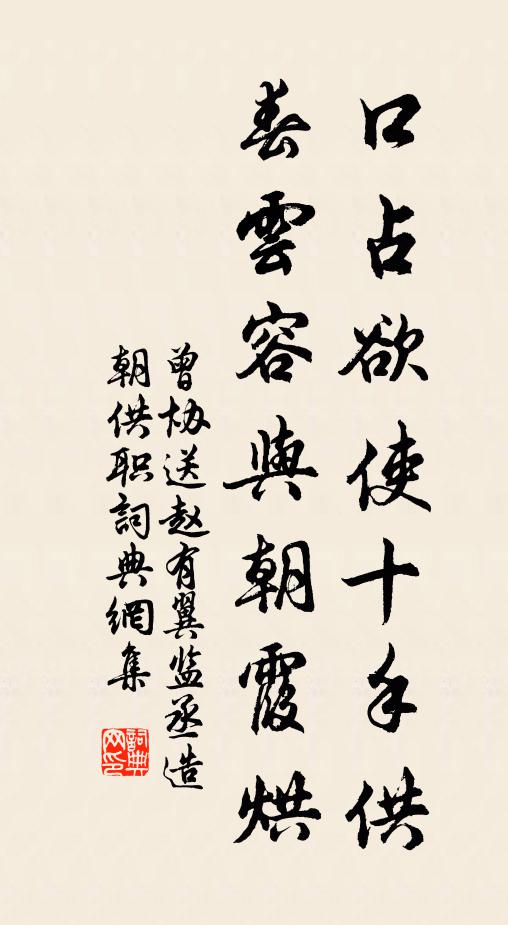 口占欲使十手供
春雲容與朝霞烘
曾协送赵有翼监丞造
朝供职詞典網集
詞典网印